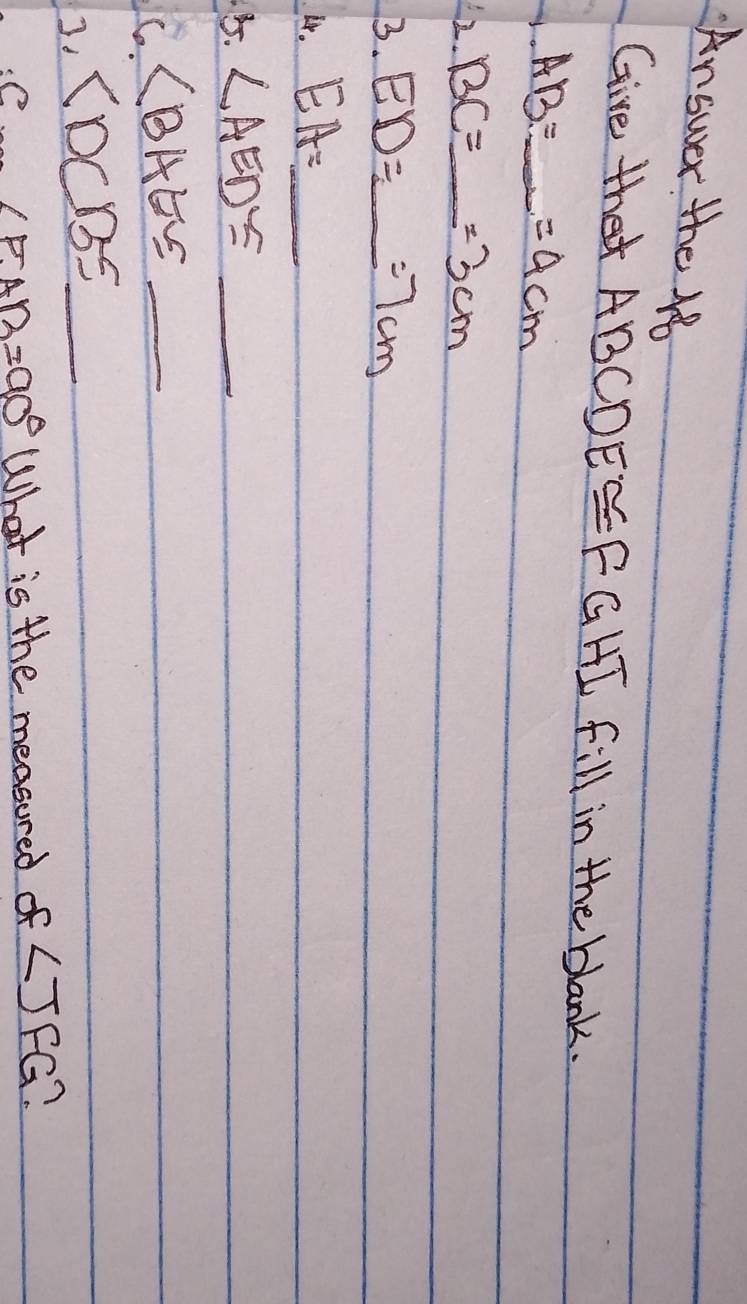 Answer the
Give that ABCDE≅FGHI fill in the blank.
1. AB=___=4cm
2. BC=___=3cm
3. ED=___=7cm
4. EA=___
5. <AED≅___
6. <BAE≅___
7. <DCB≅___
<EAB=90° What is the measured of <JFG?